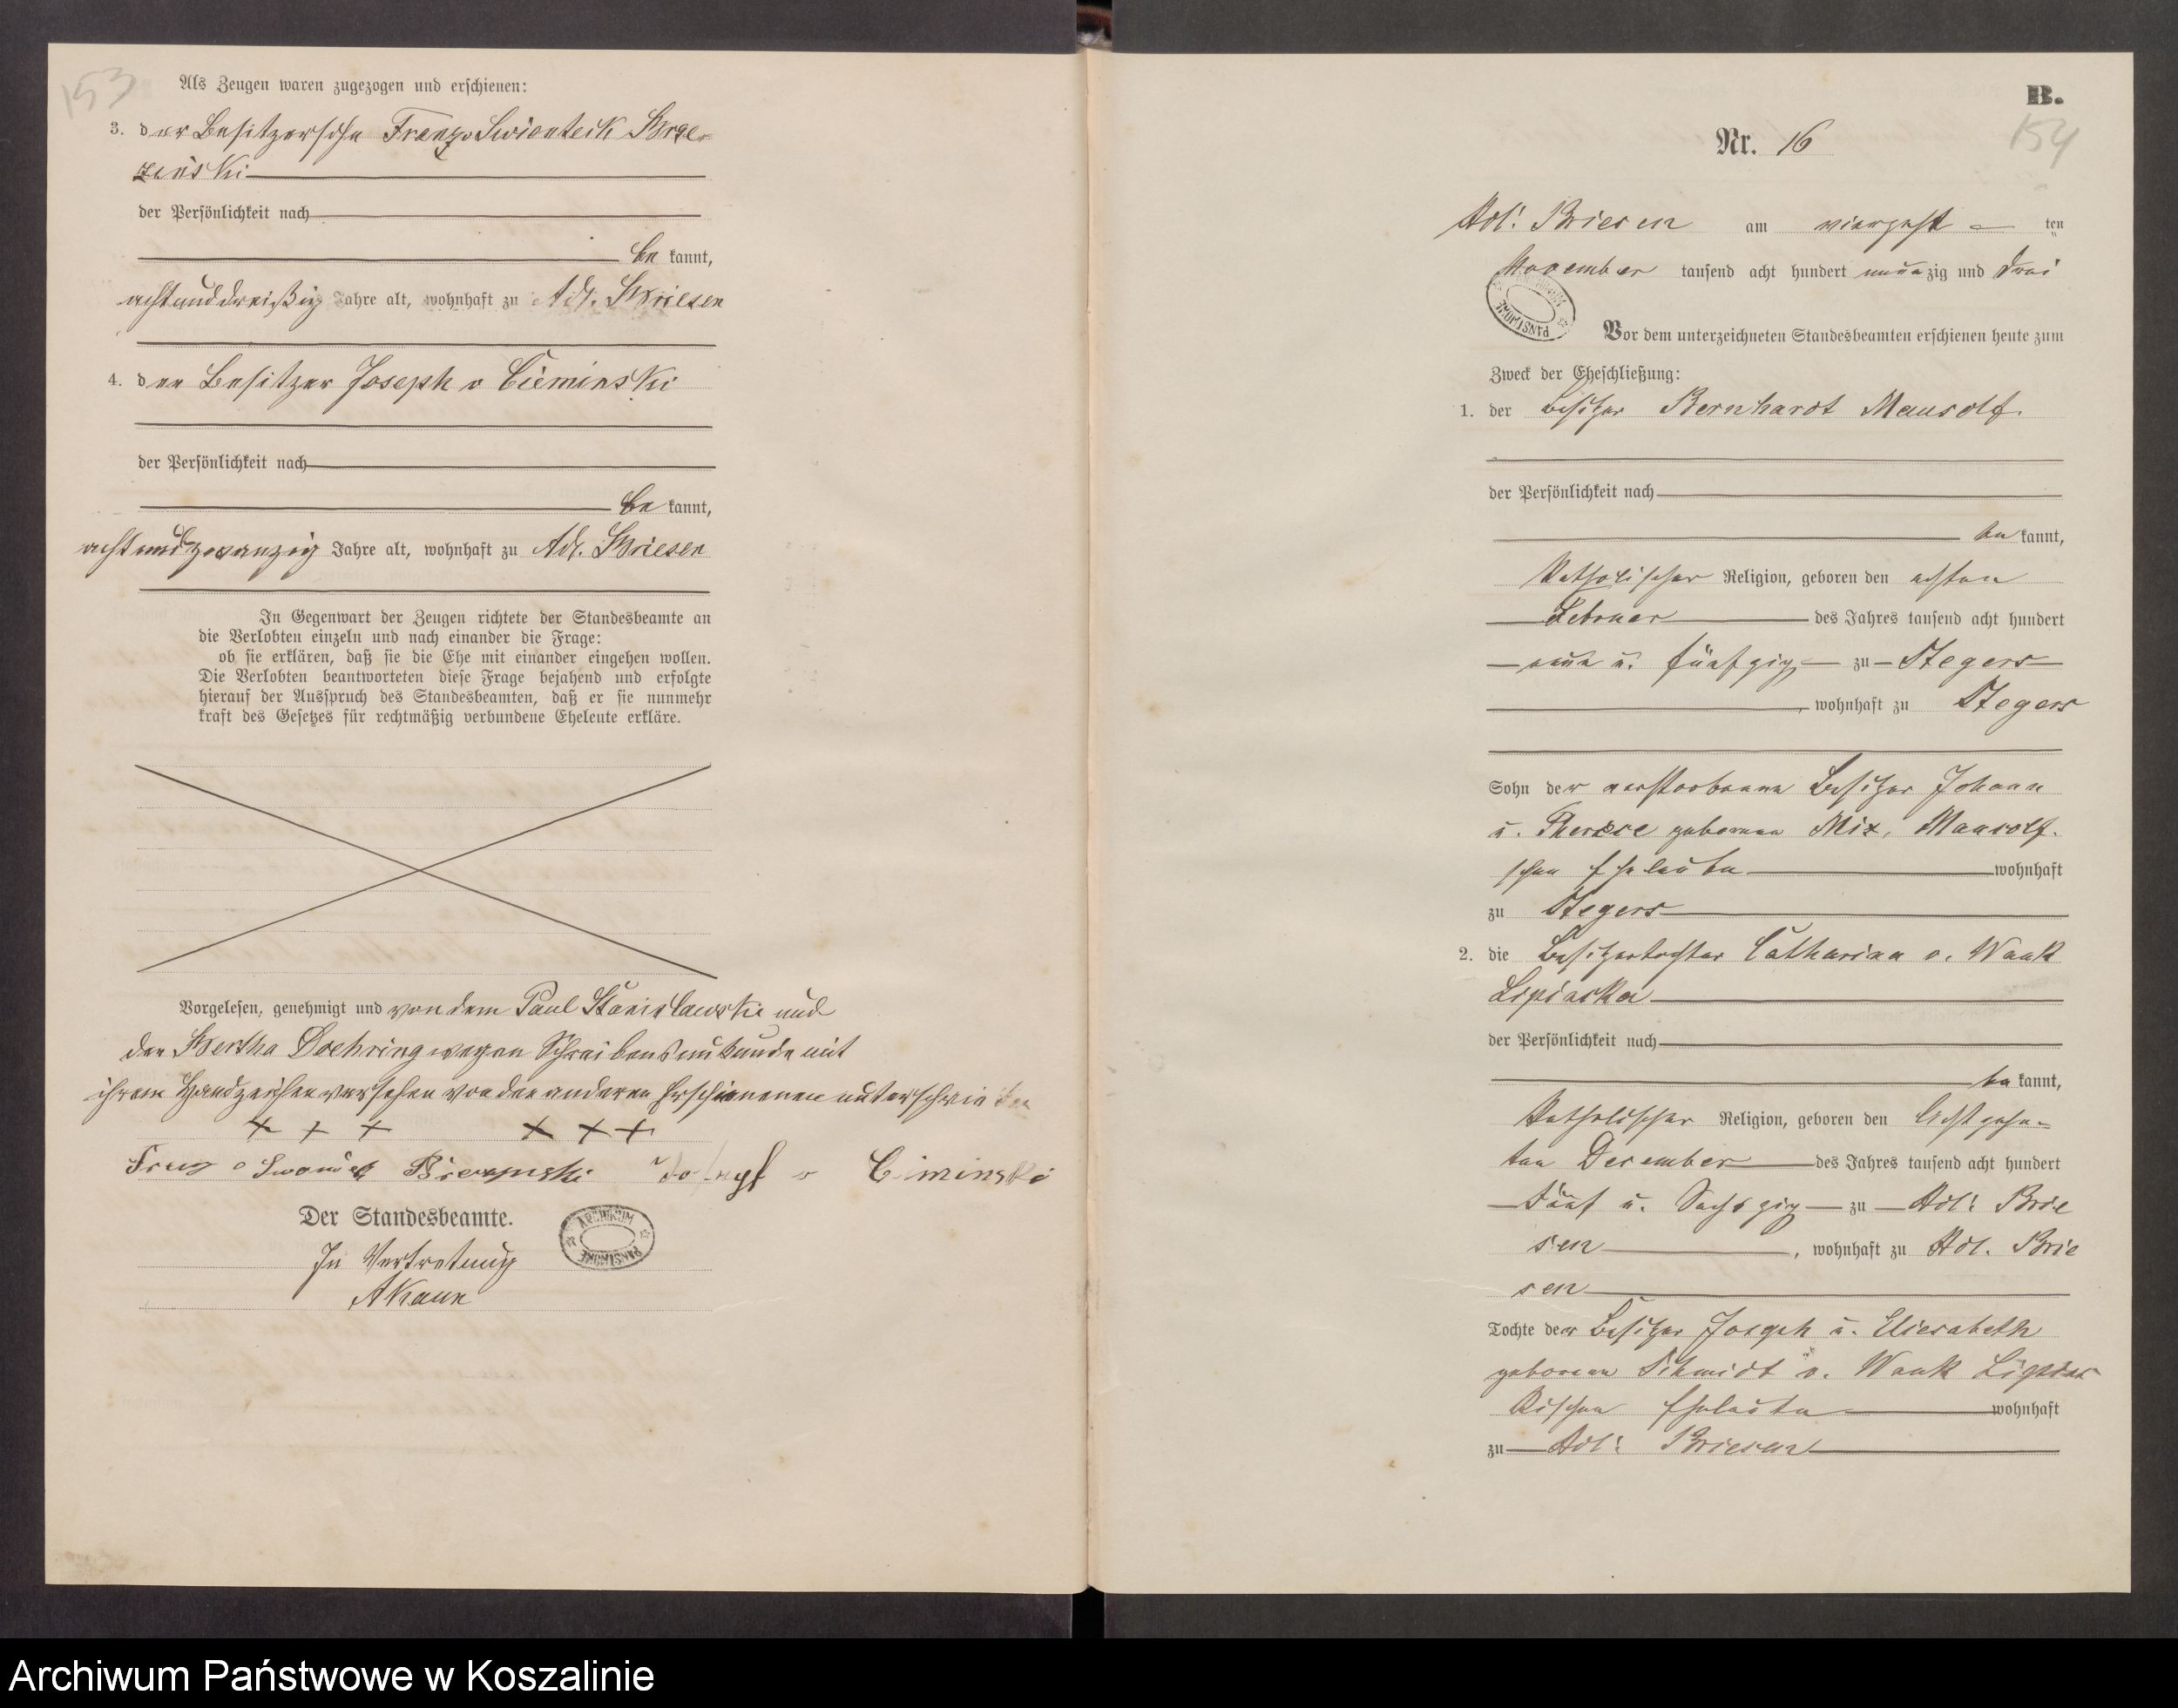 153
Als Zeugen waren zugezogen und erschienen:
3. der Besitzersohn Franz v Swionteck Brze-
zinski
der Persönlichkeit nach
be kannt,
achtunddreißig Jahre alt, wohnhaft zu Adl. Briesen
4. der Besitzer Joseph v Cieminski
der Persönlichkeit nach
be kannt,
achtundzwanzig Jahre alt, wohnhaft zu Adl. Briesen
In Gegenwart der Zeugen richtete der Standesbeamte an
die Verlobten einzeln und nach einander die Frage:
ob sie erklären, daß sie die Ehe mit einander eingehen wollen.
Die Verlobten beantworteten diese Frage bejahend und erfolgte
hierauf der Ausspruch des Standesbeamten, daß er sie nunmehr
kraft des Gesetzes für rechtmäßig verbundene Eheleute erkläre.
Vorgelesen, genehmigt und von dem Paul Stanislawski und
der Bertha Doehring wegen Schreibensunkunde mit
ihrem Handzeichen versehen von den anderen Erschienenen unterschrieben
+ + + + + +
Franz v Joseph v Ciminski
Der Standesbeamte.
In Vertretung
ARCHIWUM PAŃSTWOWE
B.
154
Nr. 16
Adl: Briesen am vierzehn ten
November tausend acht hundert neunzig und drei
PAŃSTWOWE
Vor dem unterzeichneten Standesbeamten erschienen heute zum
Zweck der Eheschließung:
1. der Besitzer Bernhardt Mausolf.
der Persönlichkeit nach
be kannt,
Katholischer Religion, geboren den achten
Februar des Jahres tausend acht hundert
neun u. fünfzig zu Stegers
, wohnhaft zu Stegers
Sohn der verstorbenen Besitzer Johann
u. Therese geborenen Mix, Mausolf-
schen Eheleute wohnhaft
zu Stegers
2. die Besitzertochter Catharina v. Wauk
Lipinska
der Persönlichkeit nach
be kannt,
Katholischer Religion, geboren den Achtzehn-
ten December des Jahres tausend acht hundert
fünf u. Sechszig zu Adl: Brie
sen , wohnhaft zu Adl. Brie
sen
Tochte der Besitzer Joseph u. Eliesabeth
geborenen Schmidt v. Wauk Lipins
kischen Eheleute wohnhaft
zu Adl: Briesen
Archiwum Państwowe w Koszalinie